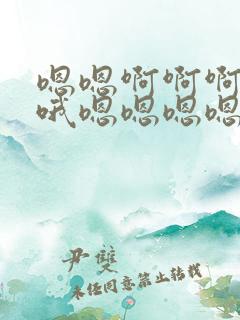 嗯嗯啊啊啊
哦嗯嗯嗯嗯
尹双
未经同意禁止转载